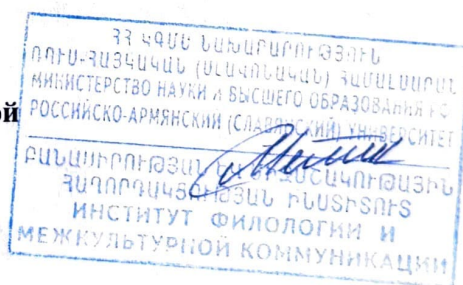 ՀՀ ԿԳՄՍ ՆԱԽԱՐԱՐՈՒԹՅՈՒՆ
ՌՈՒՍ-ՀԱՅԿԱԿԱՆ (ՍԼԱՎՈՆԱԿԱՆ) ՀԱՄԱԼՍԱՐԱՆ
МИНИСТЕРСТВО НАУКИ И ВЫСШЕГО ОБРАЗОВАНИЯ РФ
ой РОССИЙСКО-АРМЯНСКИЙ (СЛАВЯНСКИЙ) УНИВЕРСИТЕТ
ԲԱՆԱՍԻՐՈՒԹՅԱՆ ՄԻՋՄՇԱԿՈՒԹԱՅԻՆ
ՀԱՂՈՐԴԱԿՑՈՒԹՅԱՆ ԻՆՍՏԻՏՈՒՏ
ИНСТИТУТ ФИЛОЛОГИИ И
МЕЖКУЛЬТУРНОЙ КОММУНИКАЦИИ